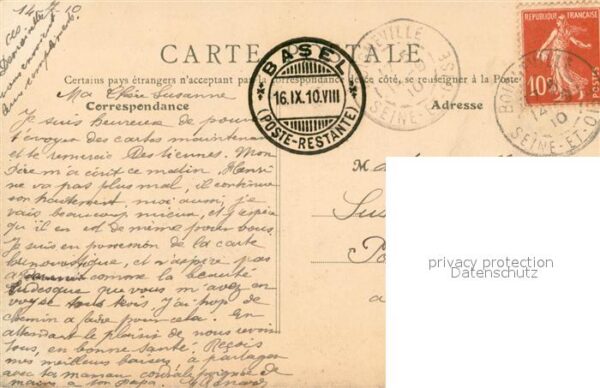 14 - 9 - 10
CARTE POSTALE
Certains pays étrangers n'acceptant pas la correspondance de ce côté, se renseigner à la Poste
Ma Chère Suzanne
Correspondance
Adresse
BASEL
16.IX.10.VIII
(POSTE-RESTANTE)
SEINE-ET-O
RÉPUBLIQUE FRANÇAISE
10
14
10
SEINE-ET-O
Je suis heureux de pouvoir
t'envoyer des cartes maintenant
et te remercie des tiennes. Mon
Père m'a écrit ce matin. Henri
ne va pas plus mal, il continue
son traitement moi aussi, je
vais beaucoup mieux, et j'espère
qu'il en est de même pour vous.
Je suis en possession de la carte
et n'aspire pas
comme la beauté
que vous m'avez en
voyée tous trois. J'ai trop de
chemin à faire pour cela. En
attendant le plaisir de vous revoir
tous, en bonne santé. Reçois
mes meilleurs baisers à partager
avec ta maman cordiale poignée de
mains à ton papa.
M
Su
P
a
privacy protection
Datenschutz